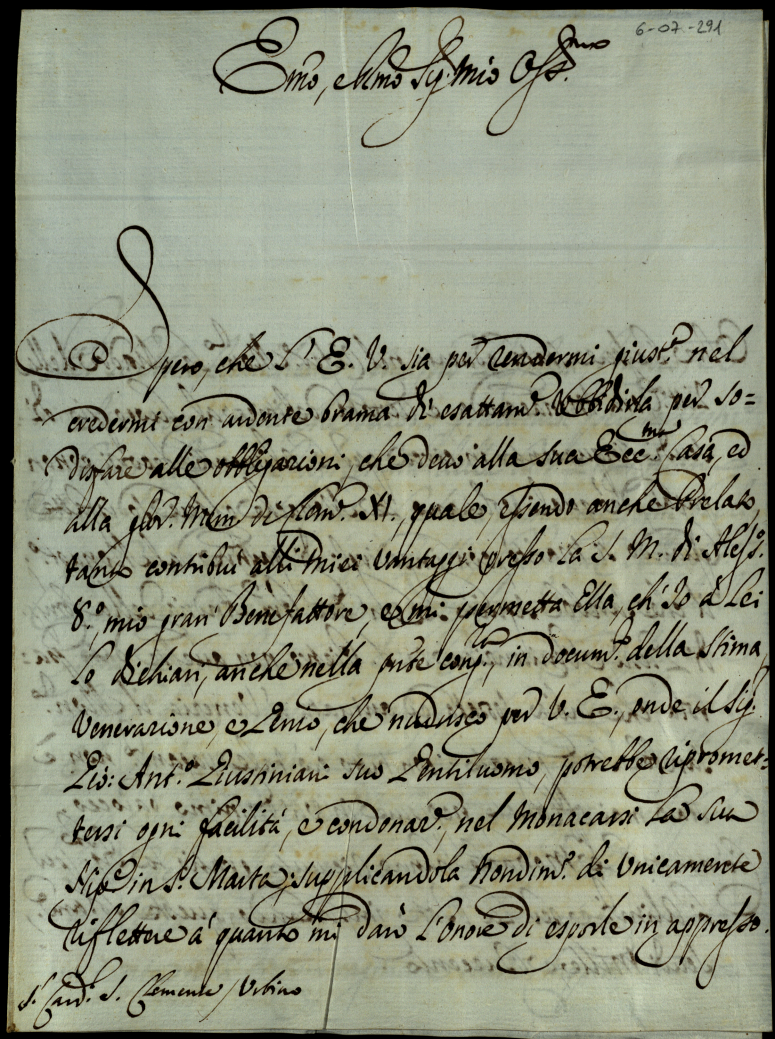 6-07-291
Emo, e Rmo Sig. mio Oss.mo
Spero, che l'E. V. sia per rendermi giust.a nel
credermi con ardente brama di esattam.e Ubbidirla per so=
disfare alle obbligazioni, che devo alla sua Ecc.ma Casa, ed
alla glor. Mem di Clem.e XI., quale, essendo anche Prelato,
tanto contribuì alli miei vantaggi presso la S. M. di Aless.o
8.o, mio gran Benefattore, e mi permetta Ella, ch'Io à Lei
lo dichiari, anche nella pnte cong.ra, in docum.o della Stima,
Venerazione, e Zelo, che nudrisco per V. E., onde il Sig.
Gio: Ant.o Giustiniani suo Gentiluomo, potrebbe ripromet=
tersi ogni facilità, e condonaz.e, nel Monacarsi la sua
Nip.e in S. Marta; supplicandola nondim.o di Unicamente
riflettere à quanto mi darò l'onore di esporle in appresso.
S.r Card. S. Clemente / Urbino